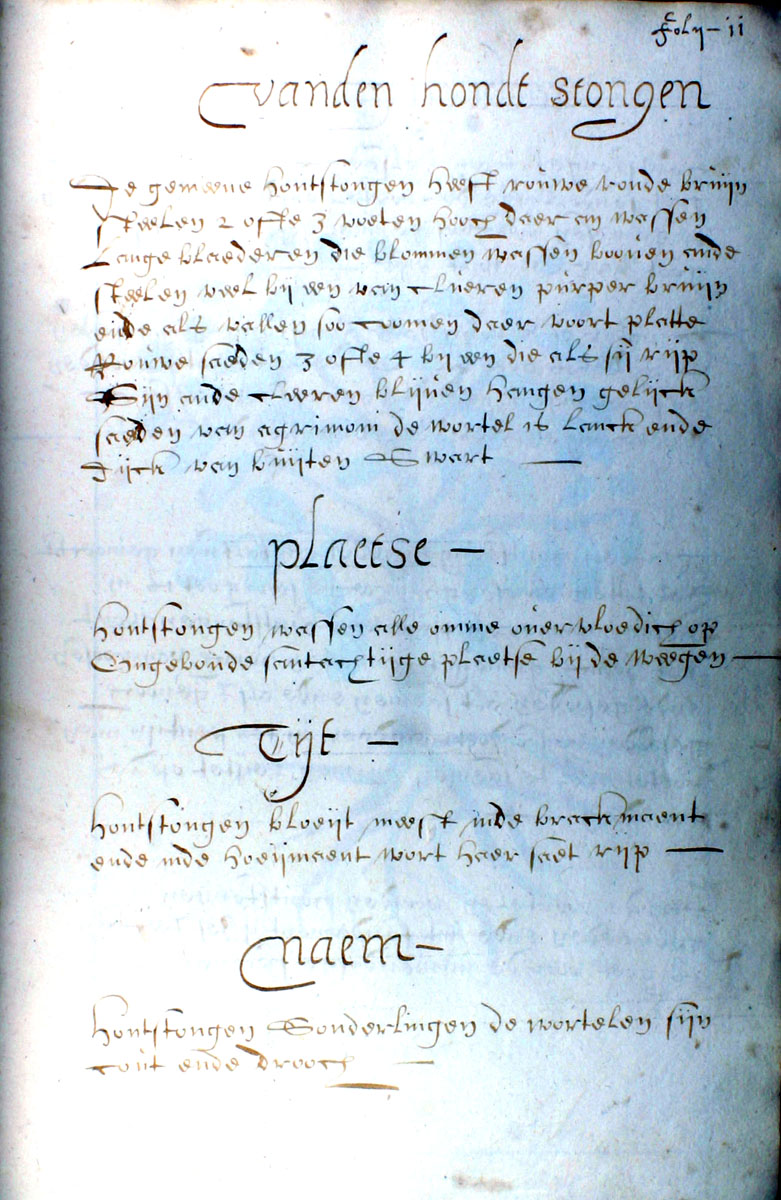 Foly - 11
vanden hondt stongen
De gemeene hontstongen heeft rouwe ronde bruijn
steelen 2 ofte 3 voeten hooch daer an wassen
Lange blaederen die blommen wassen booven ande
steelen veel bij een van clueren purper bruijn
ende als vallen soo coomen daer voort platte
Rouwe saeden 3 ofte 4 bij een die als sij rijp
Sijn ande cleeren blijven hangen gelijck
saeden van agrimoni de wortel is lanck ende
Dijck van buijten Swart —
plaetse —
hontstongen wassen alle omme overvloedich op
Ongeboude santachtijge plaetse bij de weegen —
Tijt —
hontstongen bloeijt meest inde brackmaent
ende inde hoeijmaent wort haer saet rijp —
naem —
hontstongen Sonderlingen de wortelen sijn
cout ende drooch —